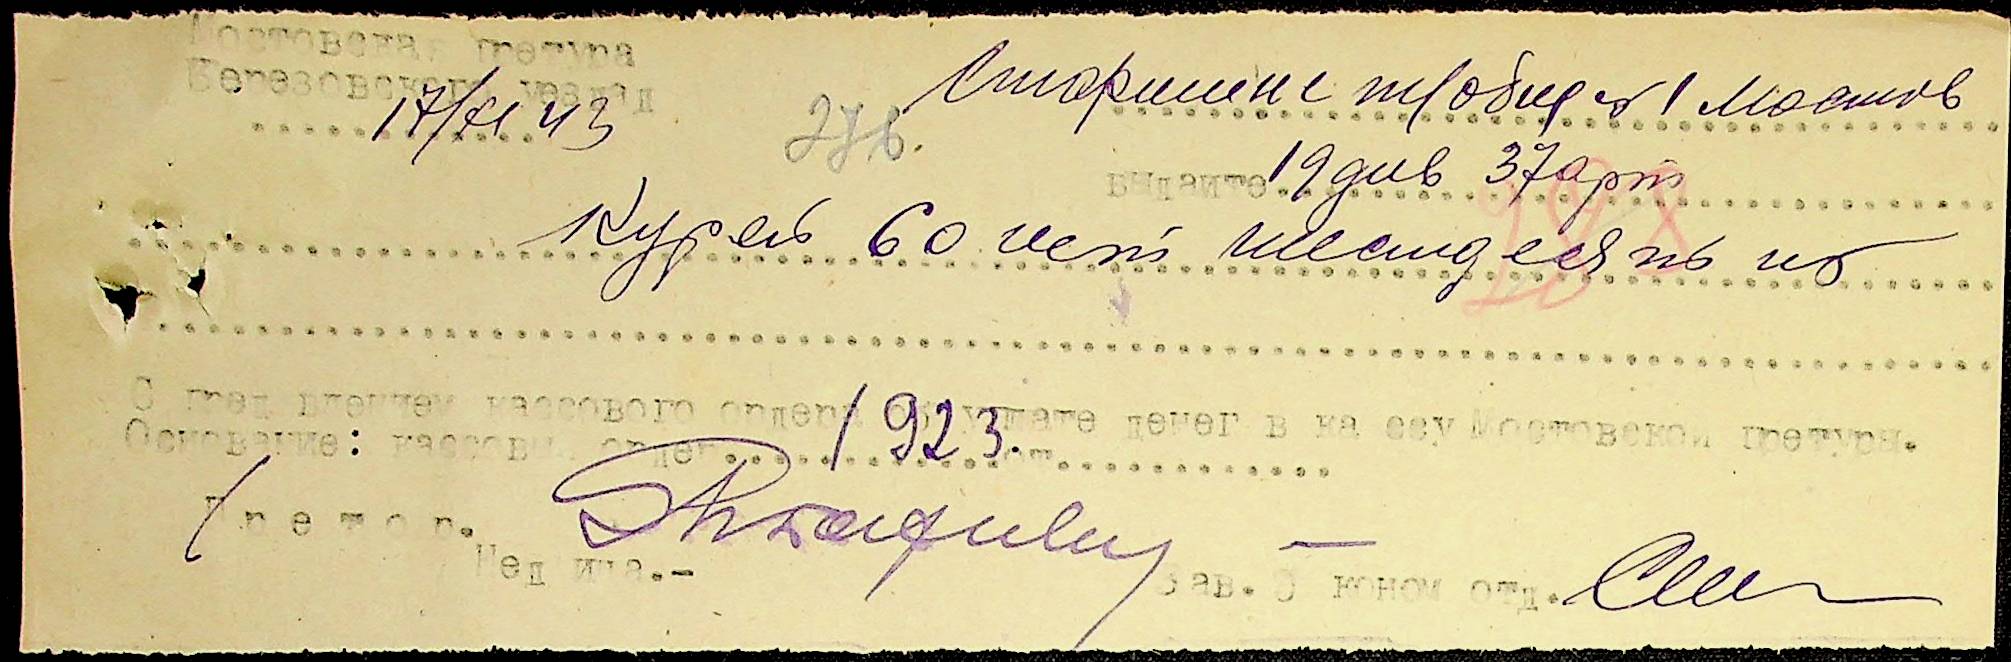 Мостовская претура
Березовского уезда
17/XI 43
278.
Старшине труобщест 1 Мостов
выдайте 19 див 37 арт
298
Курей 60 шт шестдесять шт
С пред влением кассового ордера об уплате денег в ка ссу Мостовской претуры.
Основание: кассовый ордер 1923. от
Претор.
Зав. Э коном отд.